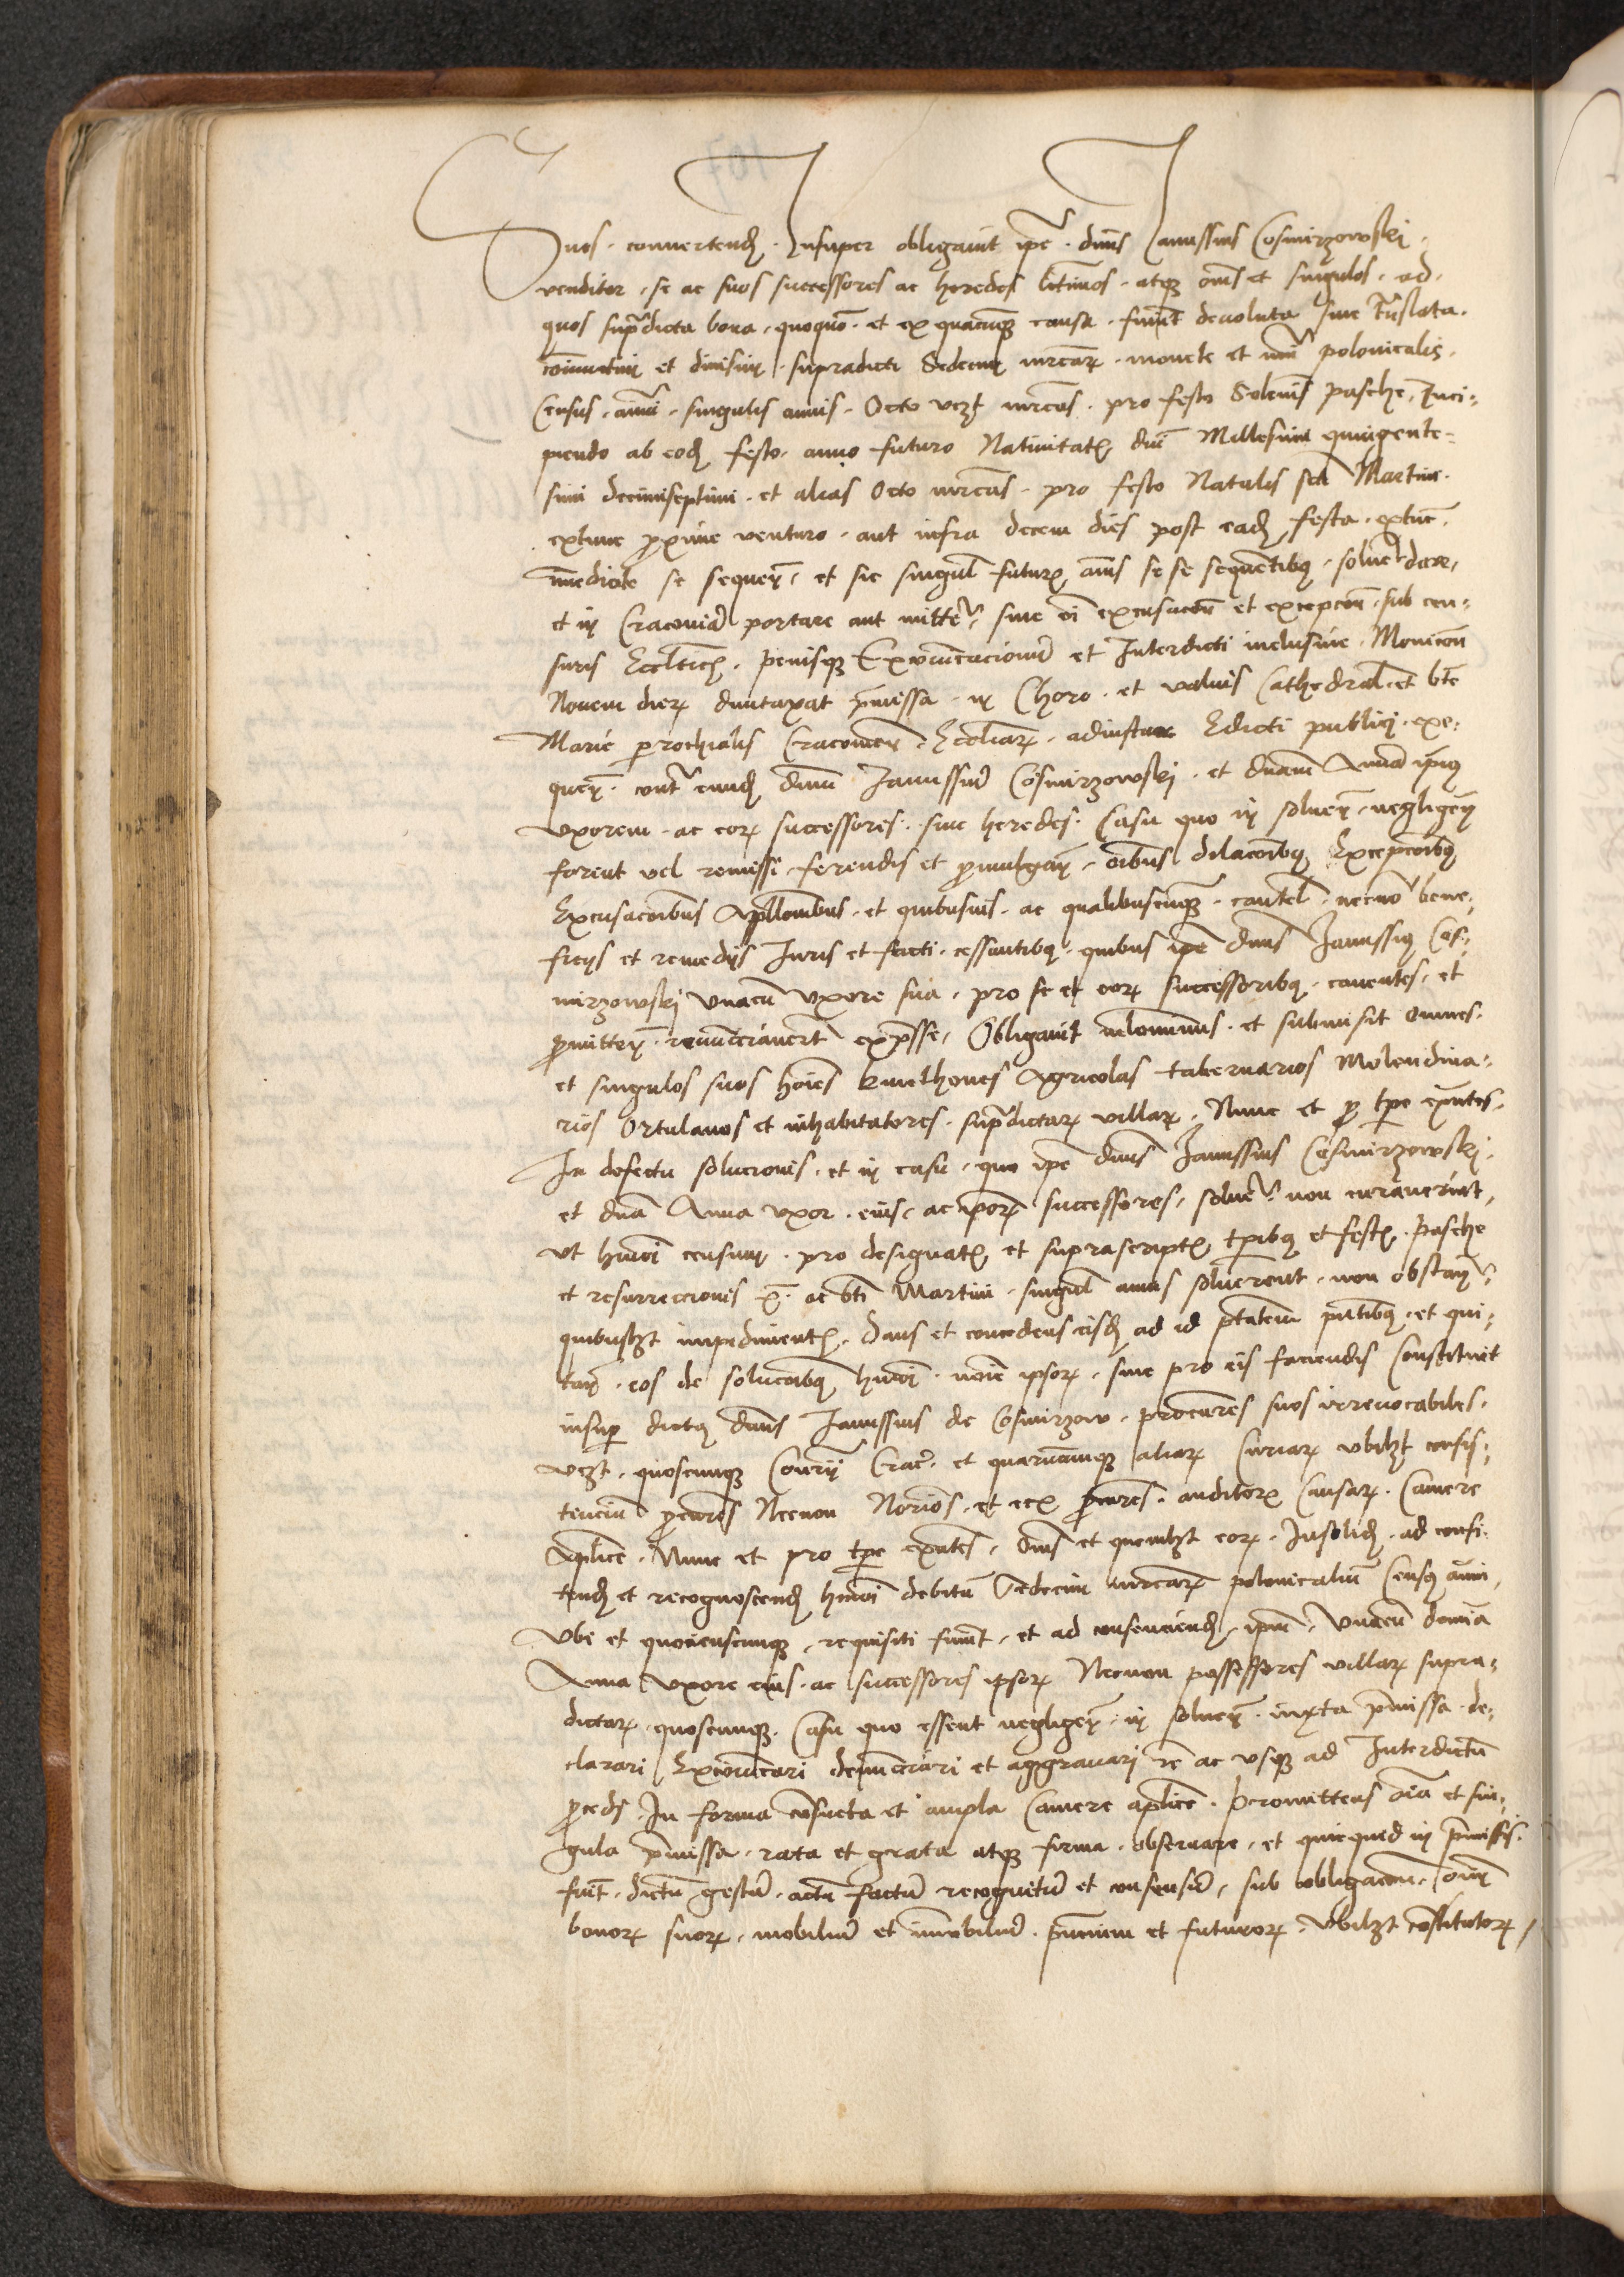 Suos convertend. Insuper obligavit ipe dnus Janussius Cosmirzowski
venditor se ac suos successores ac heredes litimos atq omes et singulos ad
quos supradicta bona quoquo et ex quacunq causa fuerint devoluta sive translata
communium et divisim supradicti Sedecim mrcar monete et nui polonicalis
Census annui singulis annis Octo vczt mrcas pro festo Solenis pasche Inci-
piendo ab eod festo anno futuro Nativitatis dni Millesimi quingente-
simi decimiseptimi et alias Octo mrcas pro festo Natalis sti Martini
extunc proxime venturo aut infra decem dies post ead festa extunc
immediate se sequen et sic singul futuris annis se se sequentibq solvere dare
et in Cracoviam portare aut mittere sine oi excusacon et excepcon sub cen-
suris Ecclticis penisq Excomunicacionum et Interdicti inclusive Monicon
Novem dierum duntaxat premissa in Choro et valvis Cathedral et bte
Marie parochialis Cracovien Eccliarum adinstar Edicti publici exe-
quen contra eund dnum Janussium Cosmirzowski et dnam Annam ipius
uxorem ac eorum successores sive heredes Casu quo in solven negligen
forent vel remissi ferendis et promulgan oibus dilacoibq Excepcoibq
Excusacoibus Apllonibus et quibusvis ac qualibuscunq cautel necno bene-
ficiis et remediis Juris et facti cessantibq quibus ipe dnus Janussius Cos-
mirzowski unacum uxore sua pro se et eorum successoribq caventes et
promitten renuncciaverunt expresse Obligavit nilominus et submisit omnes
et singulos suos hoies kmethones Agricolas tabernarios Molendina-
rios Ortulanos et inhabitatores supradictarum villarum Nunc et pro tpe exntes
In defectu solucionis et in casu quo ipe dnus Janussius Cosmirzowski
et dna Anna uxor eius ac iporum successores solvere non curaverint
Ut hmoi censum pro designatis et suprascriptis tpibq et festis pasche
et resurreccionis x ac sti Martini singul annis solverent non obstan
quibuslzt impedimentis Dans et concedens eisd ad id ptatem pntibq et qui-
tan eos de solucoibq hmoi noie ipsorum sive pro eis faciendis Constituit
insuper dictus dnus Janussius de Cosmirzow procures suos irrevocabiles
vczt quoscunq Consrii Crac et quarumcunq aliarum Curiarum ubilzt consis-
tencium procures Necnon Norios et ecc procures auditorum Causarum Camere
Aplice Nunc et pro tpe exntes oms et quemlzt eorum Insolid ad confi-
tend et recognoscend hmoi debitum Sedecim mrcarum polonicalium Census anni
Ubi et quociescunq requisiti fuerint et ad consenciend ipm unacum domina
Anna uxore eius ac successores ipsorum Necnon possessores villarum supra-
dictarum quoscunq Casu quo essent negligen in solven iuxta premissa de-
clarari Excommunicari denuncciari et aggravari re ac usq ad Interdictum
proced In forma consueta et ampla Camere aplice Promittens oia et sin-
gula premissa rata et grata atq firma observare et quicquid in premissis
fuit dictum gestum actum factum recognitum et consensum sub obligacon oim
bonorum suorum mobilium et immobilium presentium et futurorum Ubilzt constitutorum